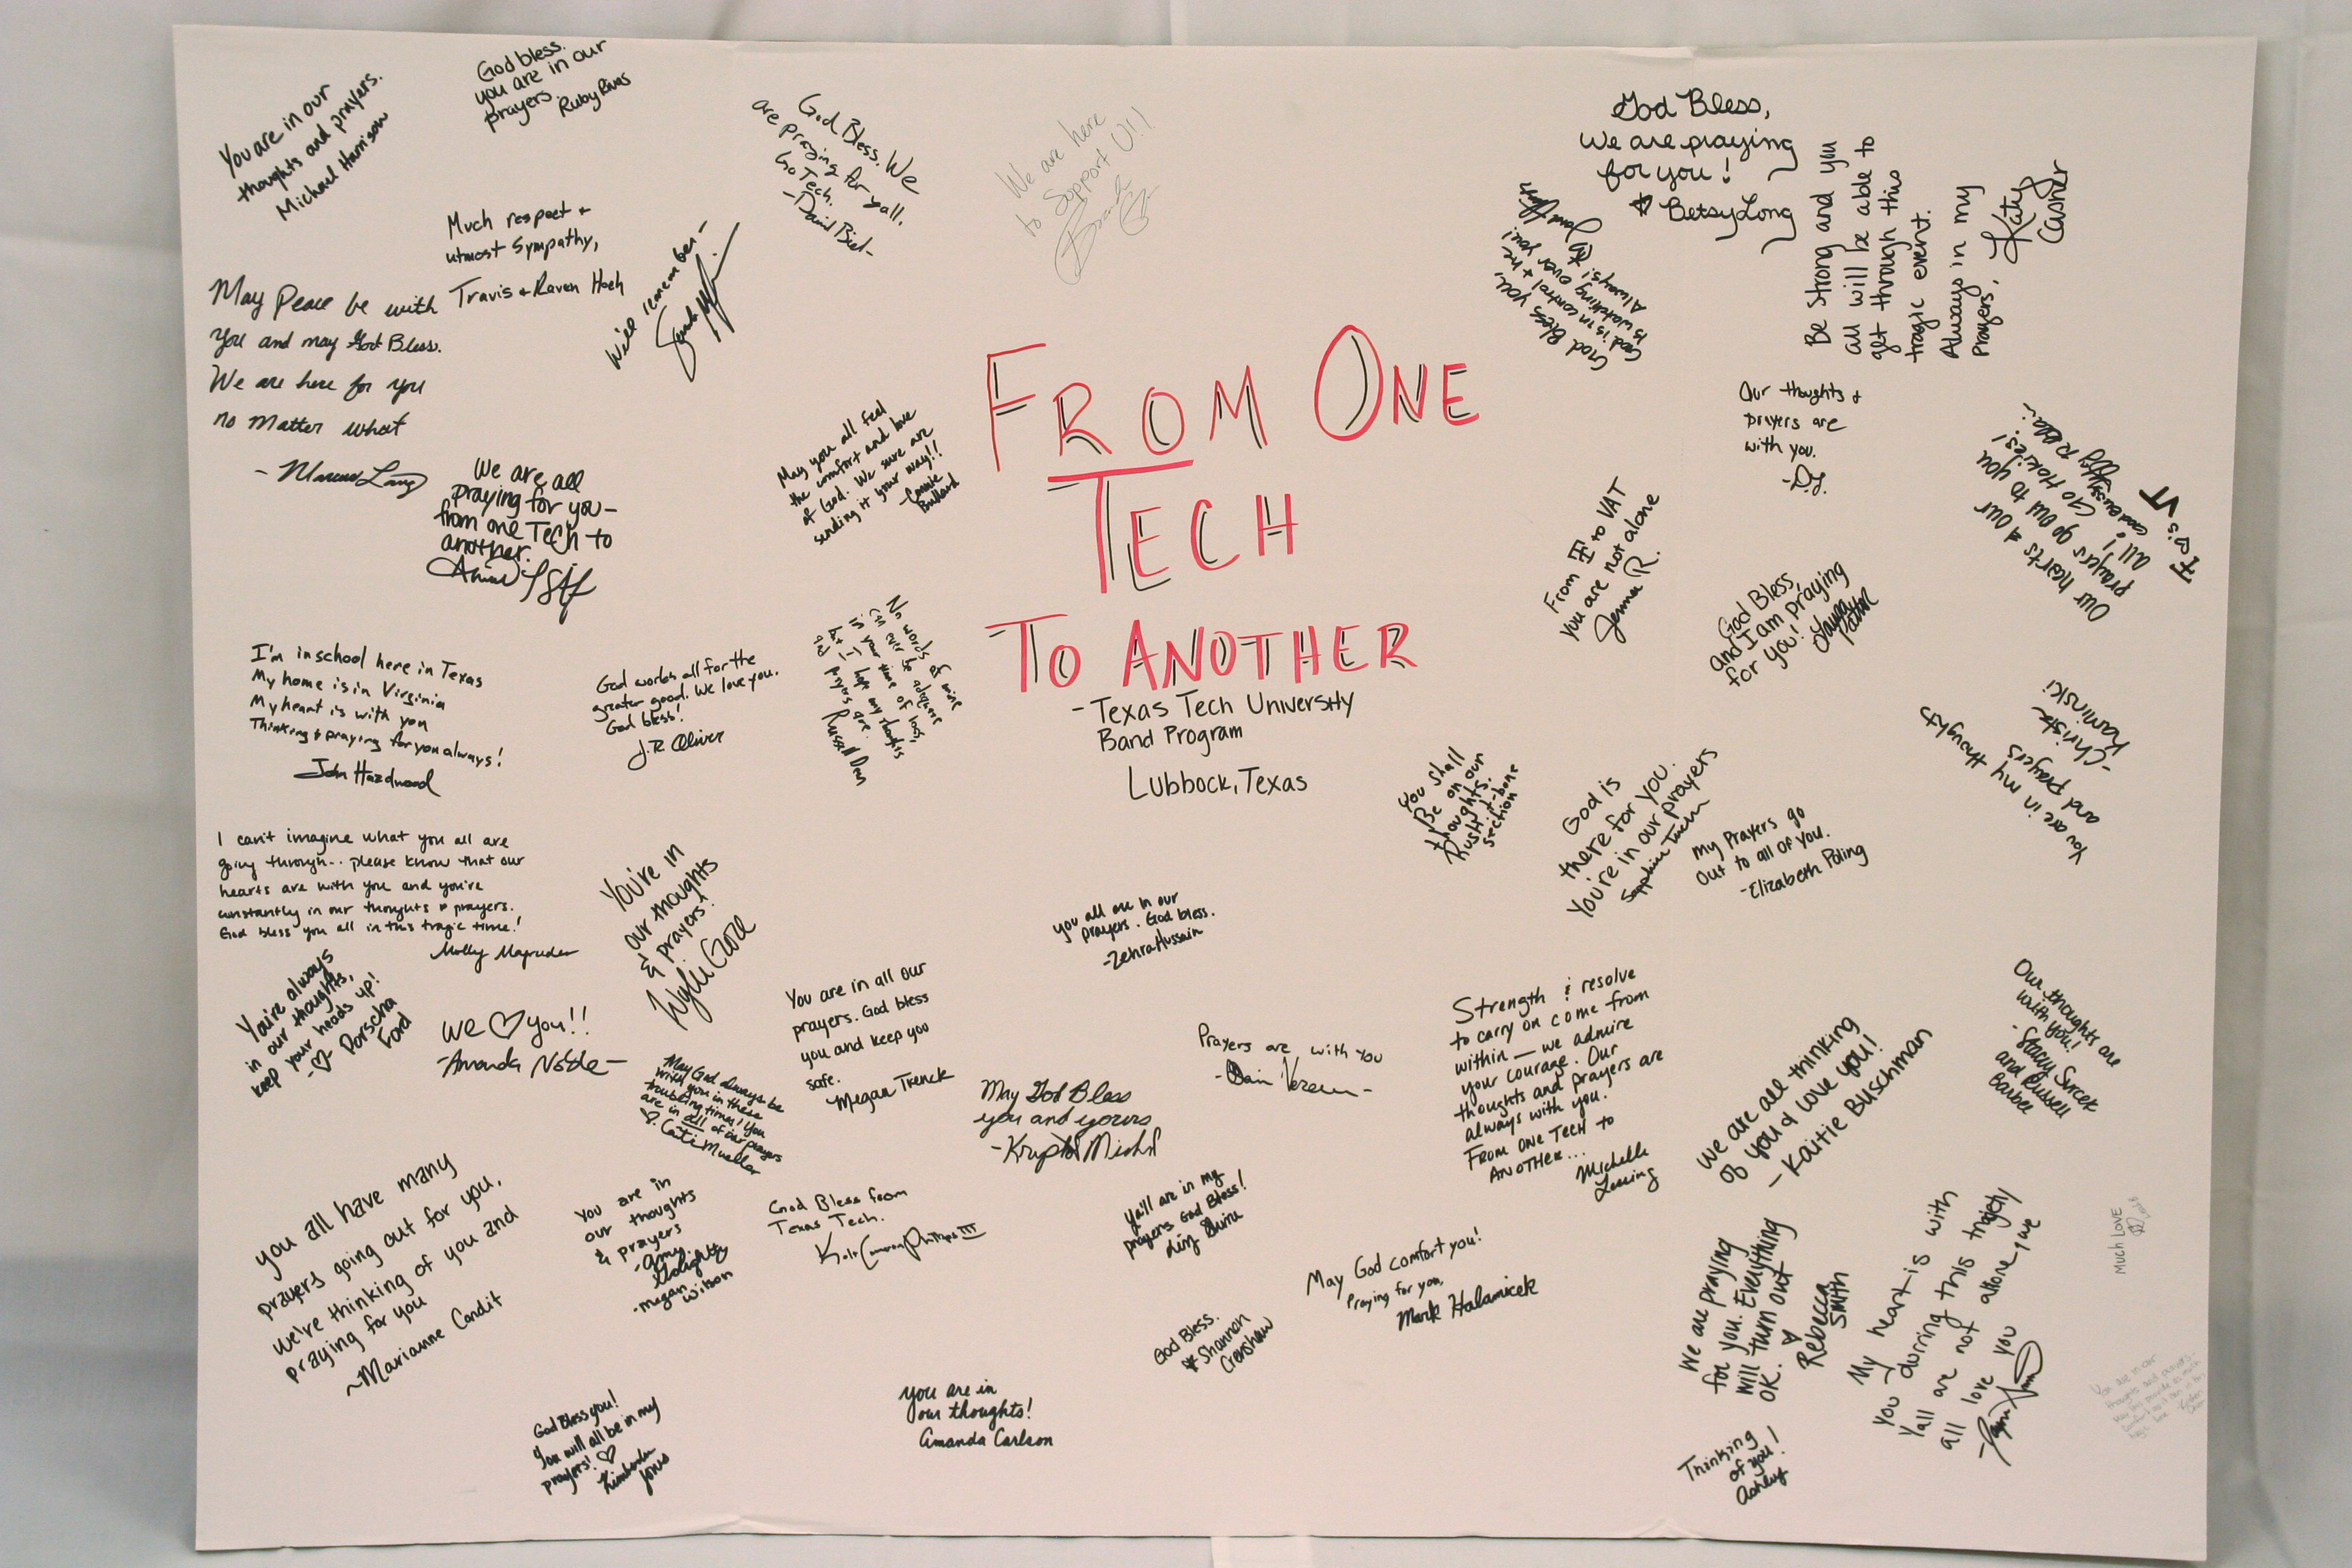 FROM ONE
TECH
TO ANOTHER
- Texas Tech University
Band Program
Lubbock, Texas
You are in our
thoughts and prayers.
Michael Harrison
God bless.
you are in our
prayers.
Ruby Rivas
God Bless. We
are praying for yall.
Go Tech.
- David Biel -
We are here
to Support U!!
God Bless,
We are praying
for you!
Betsy Long
Be strong and you
all will be able to
get through this
tragic event.
Always in my
prayers,
Katy
Casner
God Bless you,
God is in control + he
Is watching over you!
Always!
Much respect +
utmost sympathy,
Travis + Raven Hoch
Will remember -
May Peace be with
You and may God Bless.
We are here for you
no matter what
- Marcus Lang
We are all
praying for you -
from one Tech to
another.
May you all feel
the comfort and love
of God. We sure are
sending it your way!!
- Connie
Bullard
Our thoughts +
prayers are
with you.
-D.J.
Our hearts & our
prayers go out to you
all!
Go Hokies!
VT
From TT to VAT
you are not alone
Jenna R.
God Bless,
and I am praying
for you!
Layna
Patton
I'm in school here in Texas
My home is in Virginia
My heart is with you
Thinking + praying for you always!
John Hazelwood
God works all for the
greater good. We love you.
God bless!
J.R. Oliver
No words of mine
can ever be adequate
in your time of loss,
but I hope my thoughts
and prayers are.
Russell Dean
You are in my thoughts
and prayers
- Christie
Kaminski
You shall
Be on our
thoughts.
section
God is
there for you.
You're in our prayers
My Prayers go
out to all of you.
- Elizabeth Poling
I can't imagine what you all are
going through.. please know that our
hearts are with you and you're
constantly in our thoughts & prayers.
God bless you all in this tragic time!
Molly Magruder
You're in
our thoughts
& prayers!
you all are in our
prayers. God bless.
- Zehra Hussain
You're always
in our thoughts,
keep your heads up!
- ♡ Porscha
Ford
We ♡ you!!
- Amanda Noble -
You are in all our
prayers. God bless
you and keep you
safe.
- Megan Trenck
May God always be
with you in these
troubling times! You
are in all of our prayers
♡. Cati Mueller
May God Bless
you and yours
Prayers are with you
Strength & resolve
to carry on come from
within — we admire
your courage. Our
thoughts and prayers are
always with you.
From one Tech to
another...
Michelle
Lensing
we are all thinking
of you & love you!
- Kaitie Buschman
Our thoughts are
with you!
- Stacy Surcek
and Russell
Barbee
you all have many
prayers going out for you,
we're thinking of you and
praying for you
~ Marianne Condit
You are in
our thoughts
& prayers
- Amy
Golightly
- Megan
Wilson
God Bless from
Texas Tech.
Kolt Cameron Phillips III
Ya'll are in my
prayers God Bless!
May God comfort you!
Praying for you,
Mark Halamicek
God Bless.
Shannon
Crenshaw
We are praying
for you. Everything
will turn out
OK.
Rebecca
Smith
My heart is with
you durring this tragedy
Yall are not allone, we
all love you
Much Love
God Bless you!
You will all be in my
prayers! ♡
Jones
you are in
our thoughts!
Amanda Carlson
Thinking
of you!
Ashley